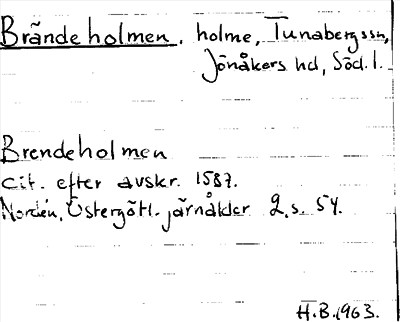 Brändeholmen, holme, Tunabergssn,
Jönåkers hd, Söd.l.
Brendeholmen
cit. efter avskr. 1587.
Nordén, Östergötl. järnålder 2, s. 54.
H.B. 1963.